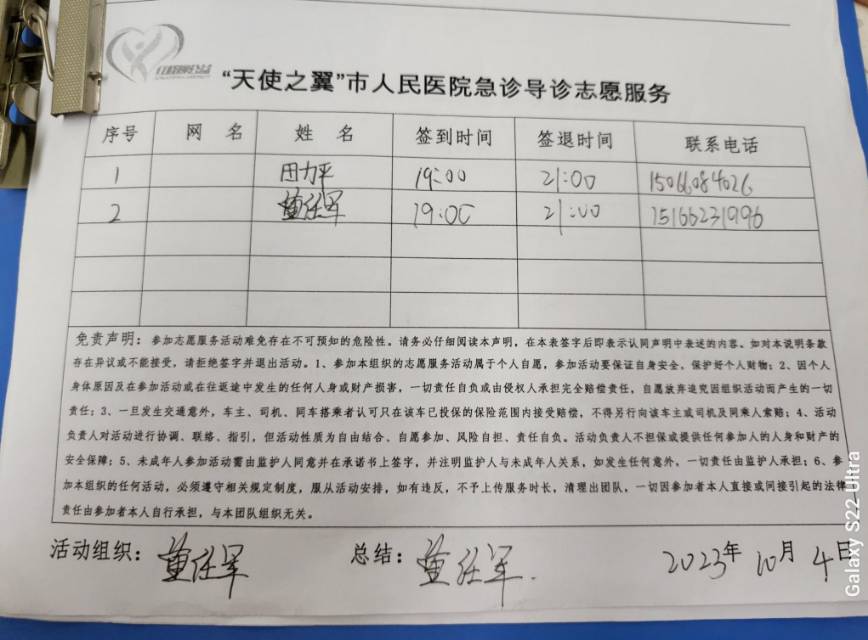 “天使之翼”市人民医院急诊导诊志愿服务
序号 网 名 姓 名 签到时间 签退时间 联系电话
1 田力平 19:00 21:00 15066084026
2 董任军 19:00 21:00 15166231996
免责声明：参加志愿服务活动难免存在不可预知的危险性。请务必仔细阅读本声明，在本表签字后即表示认同声明中表述的内容。如对本说明条款
存在异议或不能接受，请拒绝签字并退出活动。1、参加本组织的志愿服务活动属于个人自愿，参加活动要保证自身安全、保护好个人财物；2、因个人
身体原因及在参加活动或在往返途中发生的任何人身或财产损害，一切责任自负或由侵权人承担完全赔偿责任，自愿放弃追究因组织活动而产生的一切
责任；3、一旦发生交通意外，车主、司机、同车搭乘者认可只在该车已投保的保险范围内接受赔偿，不得另行向该车主或司机及同乘人索赔；4、活动
负责人对活动进行协调、联络、指引，但活动性质为自由结合、自愿参加、风险自担、责任自负。活动负责人不担保或提供任何参加人的人身和财产的
安全保障；5、未成年人参加活动需由监护人同意并在承诺书上签字，并注明监护人与未成年人关系，如发生任何意外，一切责任由监护人承担；6、参
加本组织的任何活动，必须遵守相关规定制度，服从活动安排，如有违反，不予上传服务时长，清理出团队，一切因参加者本人直接或间接引起的法律
责任由参加者本人自行承担，与本团队组织无关。
活动组织：董任军 总结：董任军. 2023年 10月 4日
Galaxy S22 Ultra